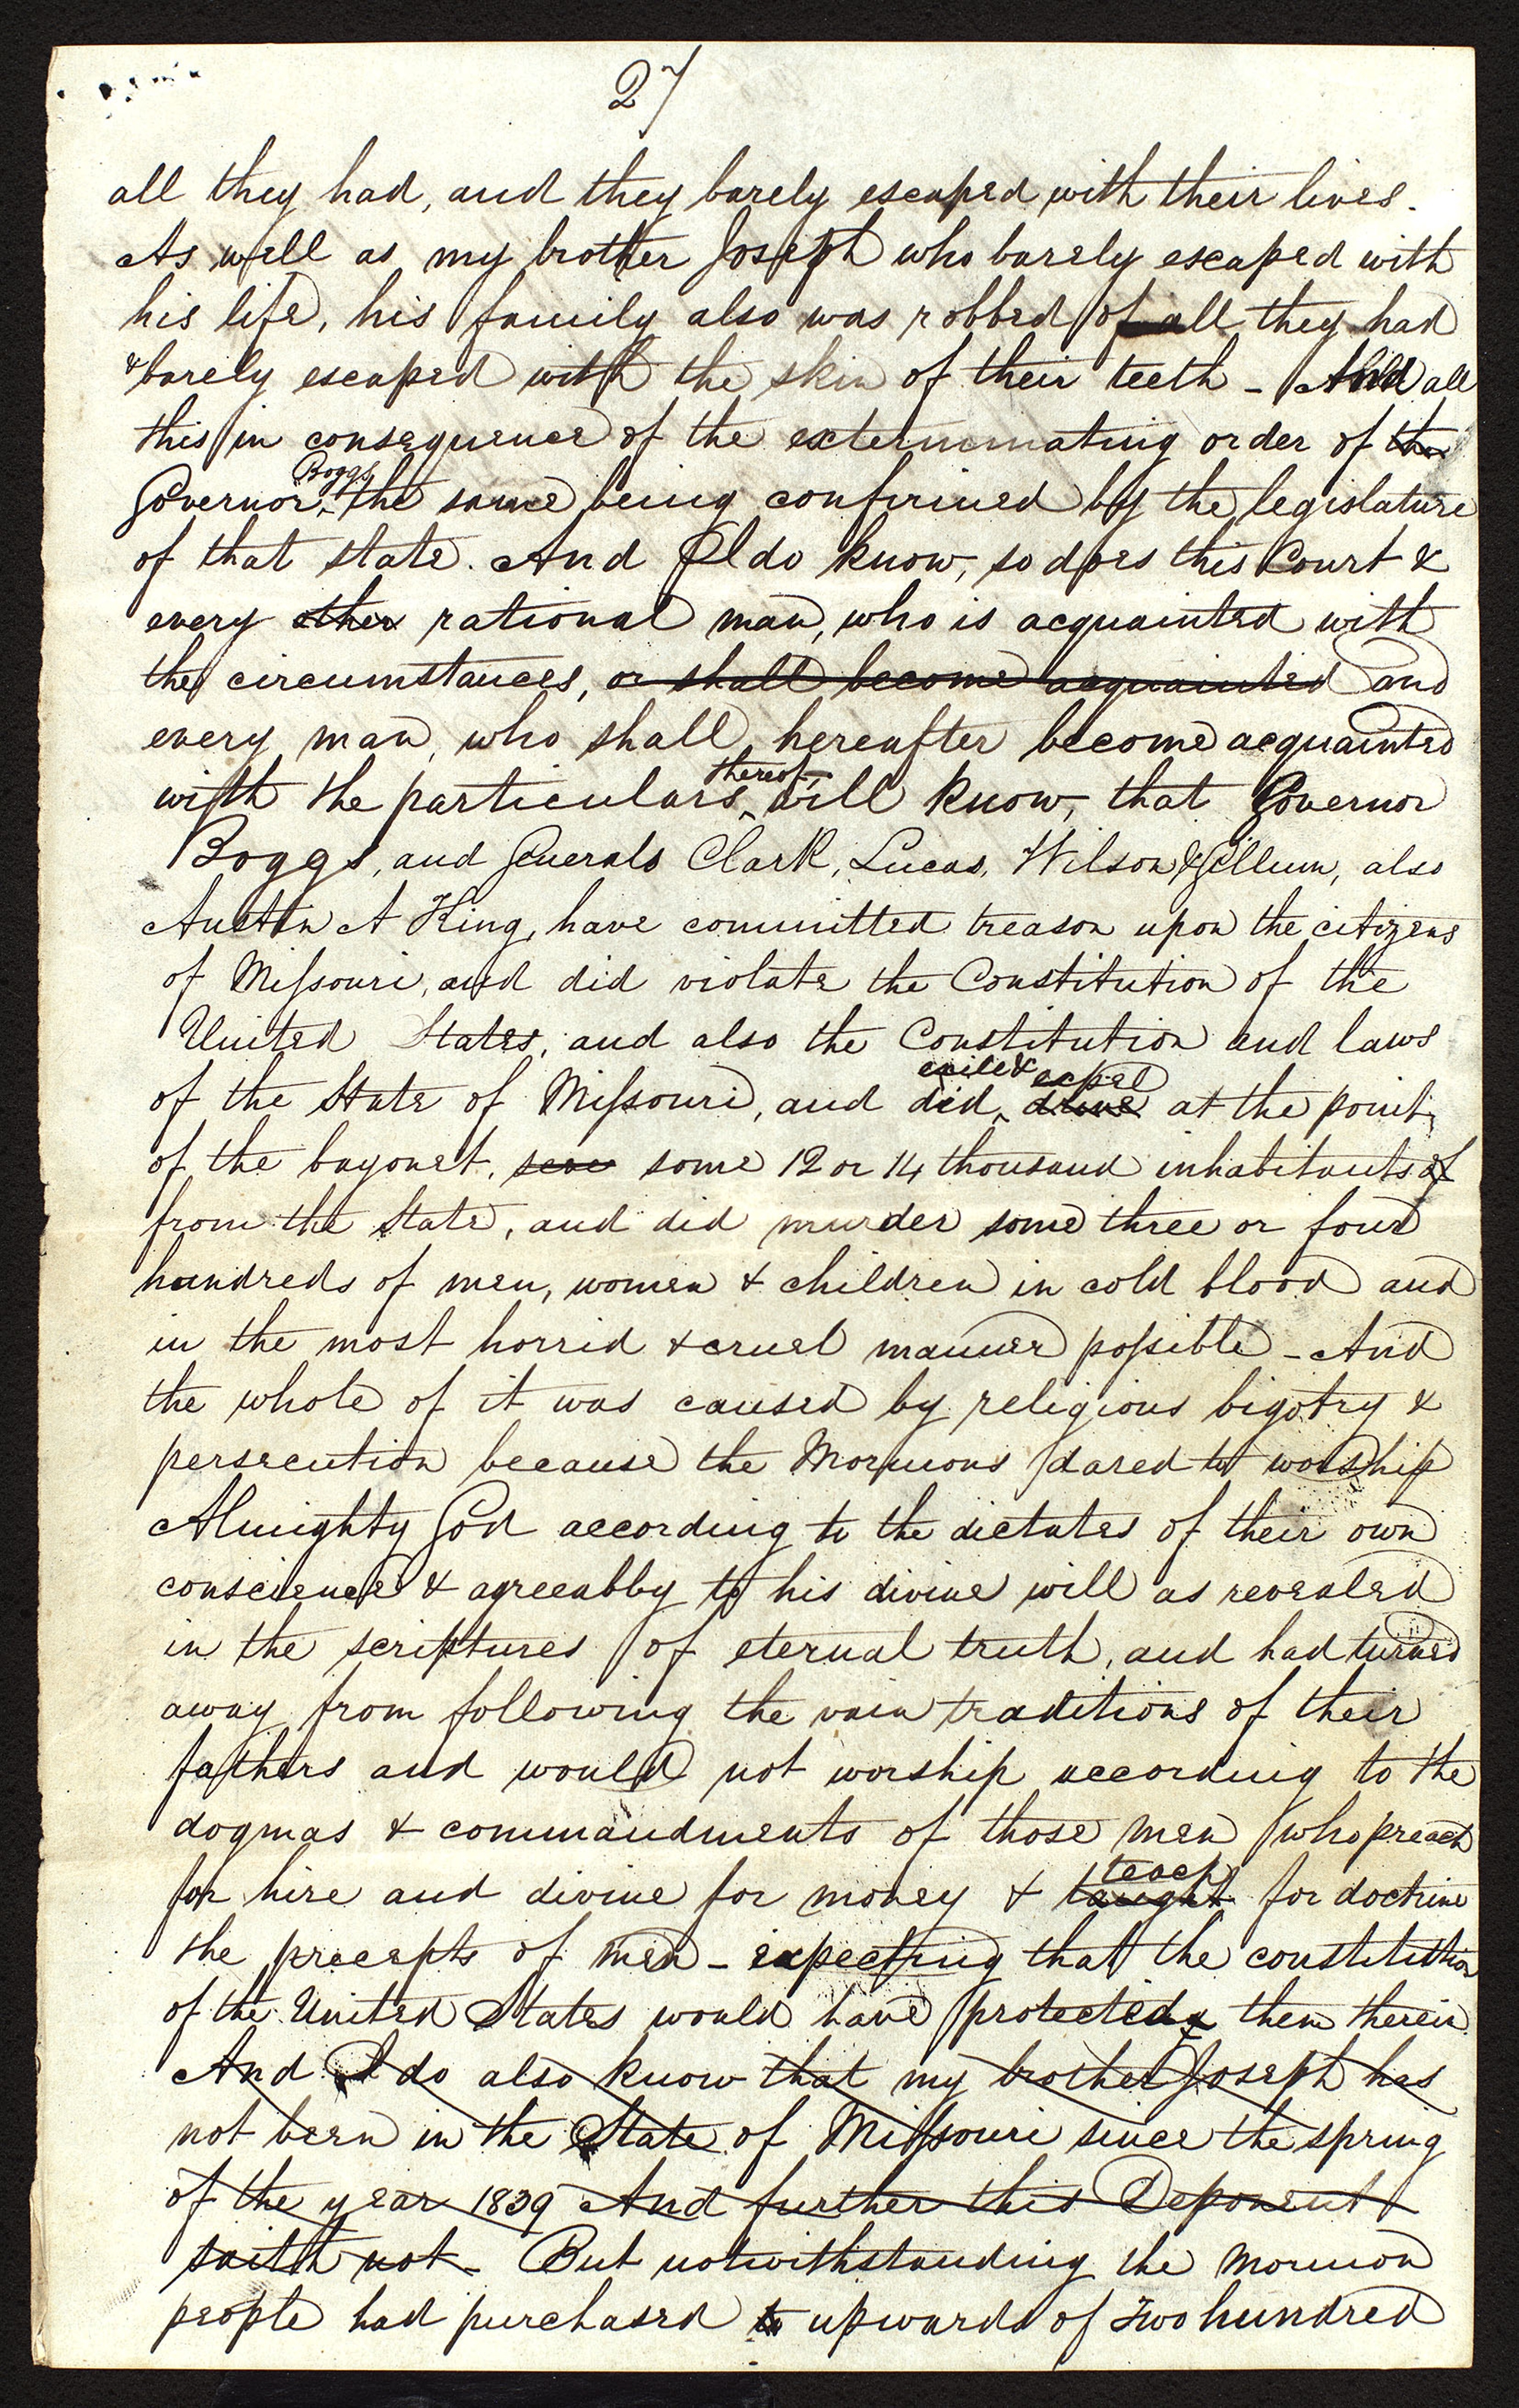 27
all they had, and they barely escaped with their lives.
As well as my brother Joseph who barely escaped with
his life, his family also was robbed of all they had
& barely escaped with the skin of their teeth - And all
this in consequence of the exterminating order of the
Governor Boggs, the same being confirmed by the legislature
of that state. And I do know, so does this Court &
every other rational man, who is acquainted with
the circumstances, or shall become acquainted and
every man, who shall hereafter become acquainted
with the particulars thereof will know, that Governor
Boggs, and Generals Clark, Lucas, Wilson & Gillum, also
Austin A King, have committed treason upon the citizens
of Missouri, and did violate the Constitution of the
United States, and also the Constitution and laws
of the State of Missouri, and did exile & expel drive at the point
of the bayonet, some 12 or 14 thousand inhabitants of
from the State, and did murder some three or four
hundreds of men, women & children in cold blood and
in the most horrid & cruel manner possible - And
the whole of it was caused by religious bigotry &
persecution because the Mormons dared to worship
Almighty God according to the dictates of their own
consciences & agreeably to his divine will as revealed
in the scriptures of eternal truth, and had turned
away from following the vain traditions of their
fathers and would not worship according to the
dogmas & commandments of those men who preach
for hire and divine for money & teach taught for doctrine
the precepts of men - expecting that the constitution
of the United States would have protected them therein
And I do also know that my brother Joseph has
not been in the State of Missouri since the spring
of the year 1839 And further this Deponent
saith not - But notwithstanding the Mormon
people had purchased to upwards of Two hundred